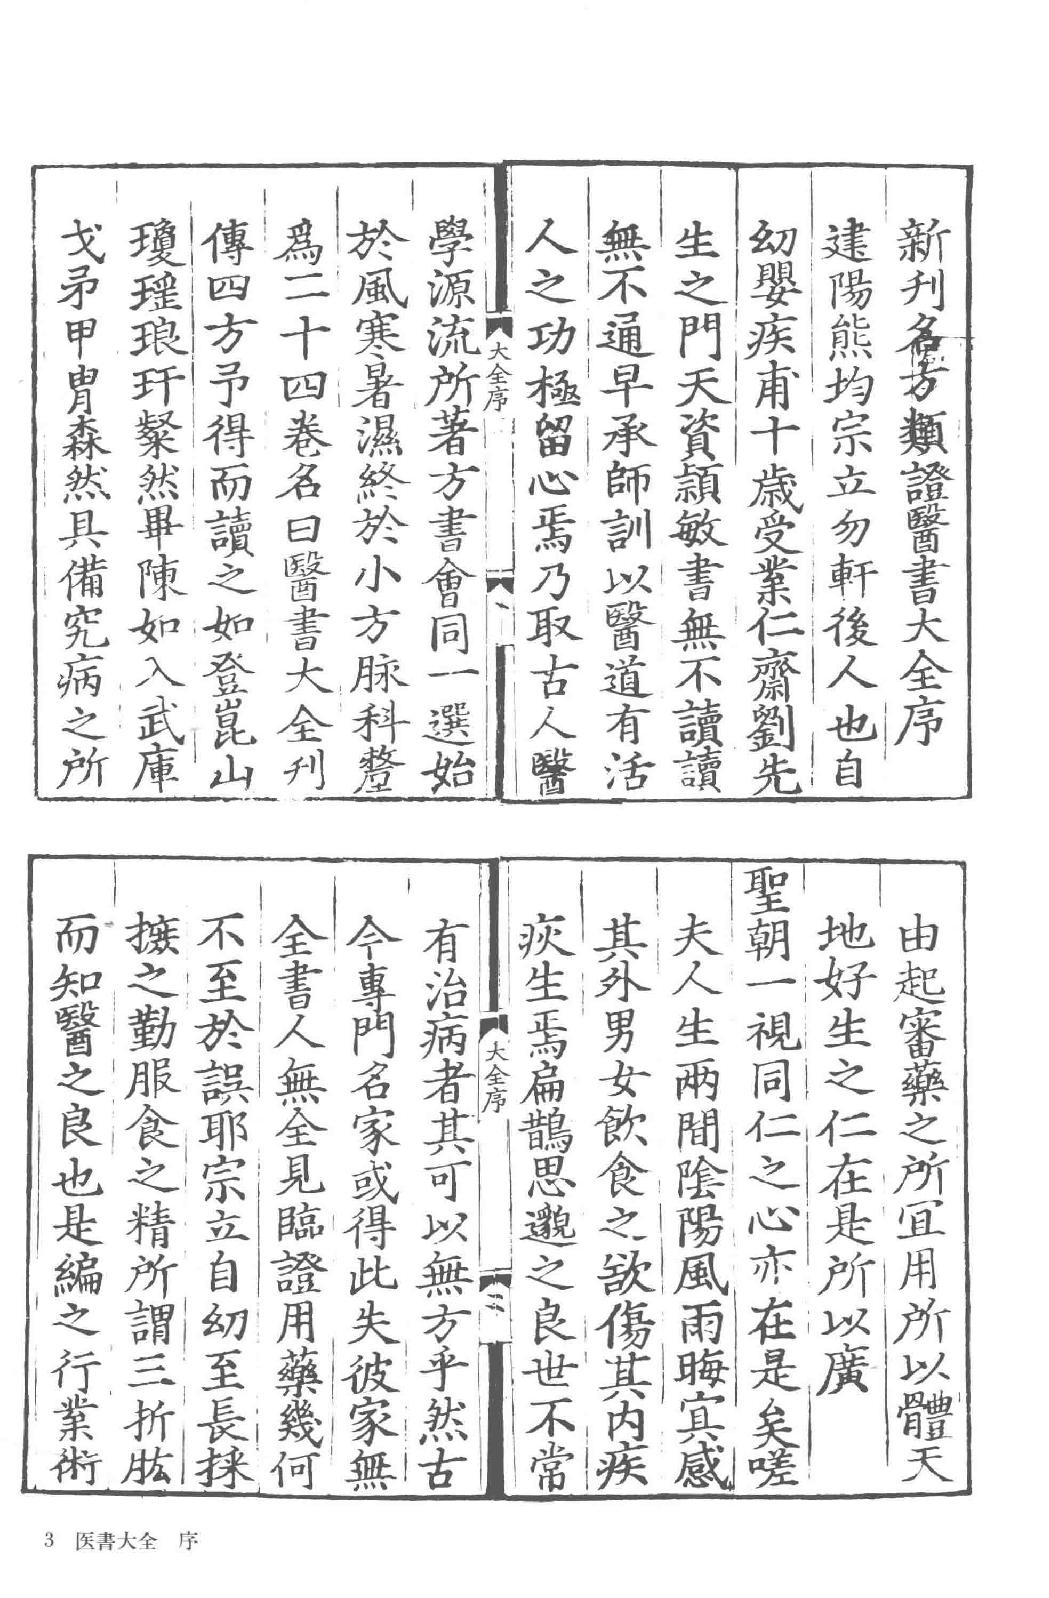 新刊名方類證醫書大全序
建陽熊均宗立勿軒後人也自
幼嬰疾甫十歳受業仁齋劉先
生之門天資頴敏書無不讀讀
無不通早承師訓以醫道有活
人之功極留心焉乃取古人醫
大全序
一
學源流所著方書會同一選始
於風寒暑濕終於小方脉科釐
爲二十四卷名曰醫書大全刋
傳四方予得而讀之如登崑山
瓊瑶琅玕粲然畢陳如入武庫
戈矛甲胄森然具備究病之所
由起審藥之所宜用所以體天
地好生之仁在是所以廣
聖朝一視同仁之心亦在是矣嗟
夫人生兩間陰陽風雨晦冥感
其外男女飲食之欲傷其内疾
疢生焉扁鵲思邈之良世不常
大全序
二
有治病者其可以無方乎然古
今專門名家或得此失彼家無
全書人無全見臨證用藥幾何
不至於誤耶宗立自幼至長採
摭之勤服食之精所謂三折肱
而知醫之良也是編之行業術
3 医書大全 序